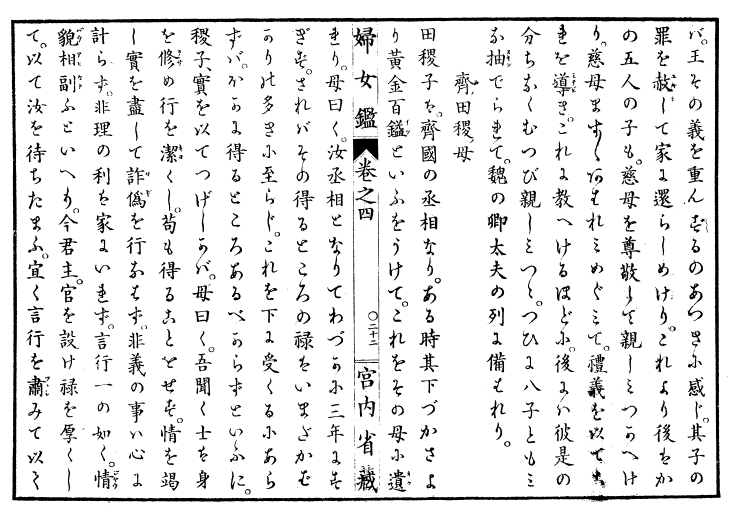 バ。王その義を重んずるのあつきに感じ。其子の
罪を赦して家に還らしめけり。これより後ほか
の五人の子も。慈母を尊敬して親しみつかへけ
り。慈母ます〱あはれみめぐみて。禮義を以て
を導き。これに教へけるほどに。後にハ彼是の
分ちなくむつび親しみつゝ。つひに八子ともみ
な抽でられて。魏の卿太夫の列に備はれり。
齊田稷ノ母
田稷子を。齊國の丞相なり。ある時其下づかさよ
り黃金百鎰といふをうけて。これをその母に遺
婦女鑑 卷之四 〇三十二 宮内省藏
れり。母曰く。汝丞相となりてわづかに三年にす
ぎず。されバその得るところの禄もいまだかむ
ありの多きに至らじ。これを下に受くるにあら
ずバ。いかに得るところあるべからずといふに。
稷子。實を以てつげしかバ。母曰く。吾聞く士を身
を修め行を潔くし。苟も得ることをせず。情を竭
し實を盡して詐僞を行なはず。非義の事ハ心に
計らず。非理の利を家にいれず。言行一の如く。情
貌相副ふといへり。今君主。官を設け禄を厚くし
て。以て汝を待ちたまふ。宜く言行を肅みて以て